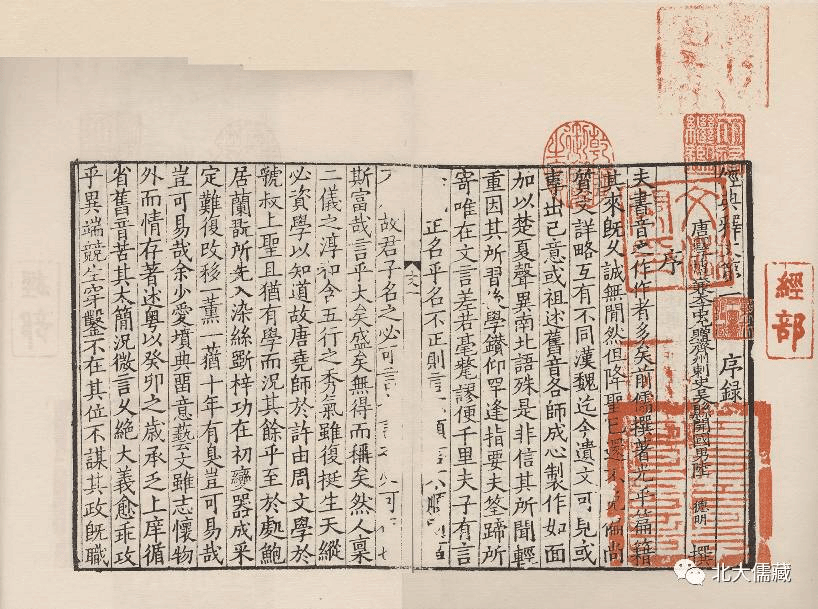 經典釋文 序錄
唐 兼太子中允贈齊州刺史吳縣開國男陸 德明 撰
序
夫書音之作作者多矣前儒撰著光乎篇籍
其來既久誠無閒然但降聖已還不免偏尚
質文詳略互有不同漢魏迄今遺文可見或
專出己意或祖述舊音各師成心製作如面
加以楚夏聲異南北語殊是非信其所聞輕
重因其所習後學鑽仰罕逢指要夫筌蹄所
寄唯在文言差若毫釐謬便千里夫子有言
正名乎名不正則言 順言 順
故君子名之必可言 言 可
斯富哉言乎大矣盛矣無得而稱矣然人稟
二儀之淳和含五行之秀氣雖復挺生天縱
必資學以知道故唐堯師於許由周文學於
虢叔上聖且猶有學而況其餘乎至於處鮑
居蘭翫所先入染絲斲梓功在初變器成采
定難復改移一薰一蕕十年有臭豈可易哉
豈可易哉余少愛墳典留意藝文雖志懷物
外而情存著述粵以癸卯之歲承乏上庠循
省舊音苦其太簡況微言久絕大義愈乖攻
乎異端競生穿鑿不在其位不謀其政既職
經部
北大儒藏